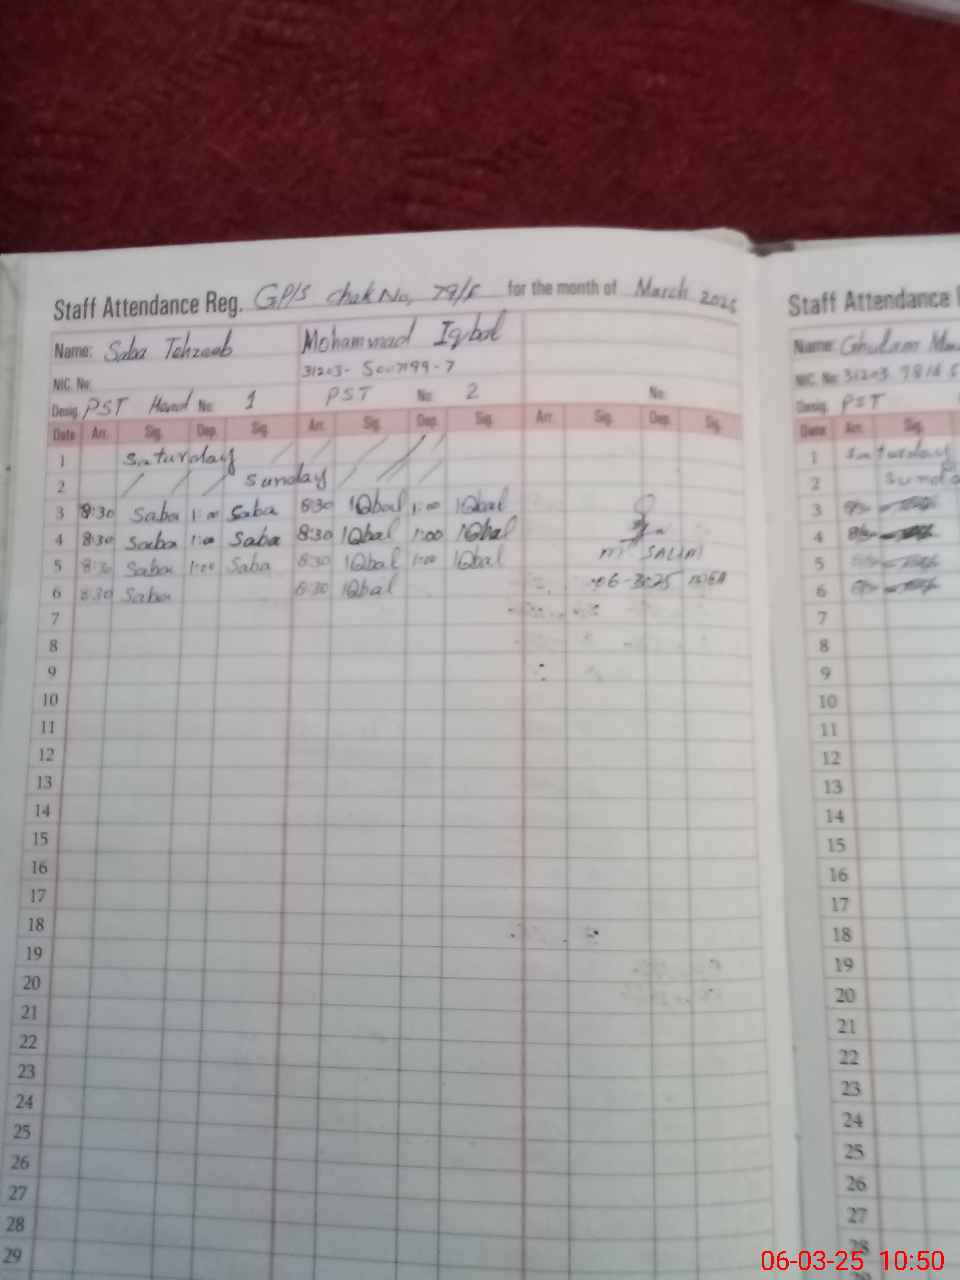 Staff Attendance Reg. GP/S Chak No, 79/F for the month of March 2025
Name: Saba Tehzeeb Mohammad Iqbal
NIC. No.
Desig. PST Head No. 1 PST No. 2 No.
Date Arr. Sig. Dep. Sig. Arr. Sig. Dep. Sig. Arr. Sig. Dep. Sig.
1 Saturday
2 Sunday
3 8:30 Saba 1:00 Saba 8:30 IQbal 1:00 IQbal
4 8:30 Saba 1:00 Saba 8:30 IQbal 1:00 IQbal
5 8:30 Saba 1:00 Saba 8:30 IQbal 1:00 IQbal
6 8:30 Saba 8:30 IQbal
7
8
9
10
11
12
13
14
15
16
17
18
19
20
21
22
23
24
25
26
27
28
29
Staff Attendance
Name: Ghulam
NIC. No. 31203
Desig. PST
Date Arr. Sig.
1 Saturday
2
3
4
5
6
7
8
9
10
11
12
13
14
15
16
17
18
19
20
21
22
23
24
25
26
27
28
06-03-25 10:50